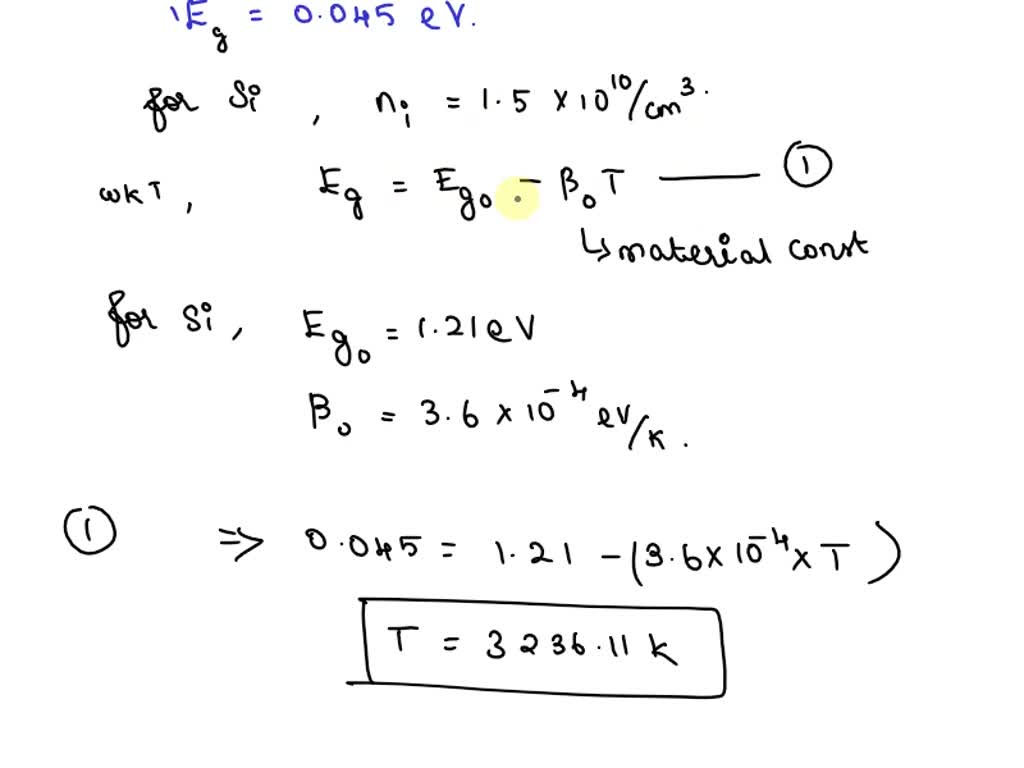 Eg = 0.045 eV.
for Si, ni = 1.5 × 10^10/cm^3.
wkT, Eg = Eg0 - β0 T —— ①
↳ material const
for Si, Eg0 = 1.21 eV
β0 = 3.6 × 10^-4 eV/K.
① ⇒ 0.045 = 1.21 - (3.6 × 10^-4 × T)
T = 3236.11 K